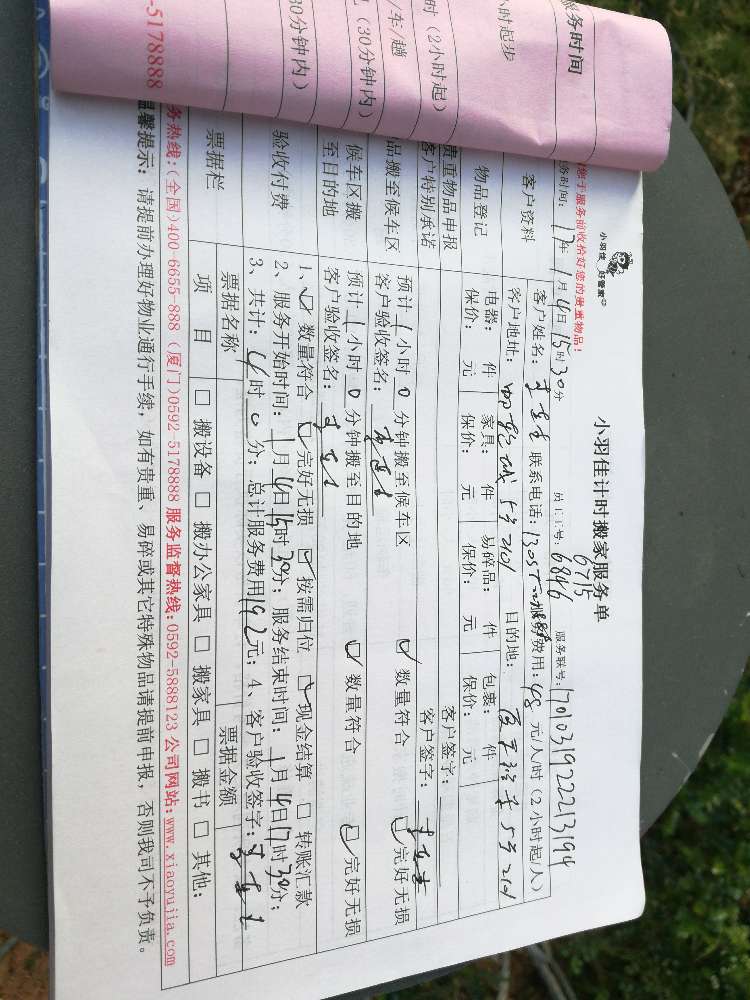 服务时间
小时起步
时（2小时起）
/车/趟
（30分钟内）
30分钟内）
-5178888
小羽佳 好管家
您于服务前收拾好您的贵重物品！
小羽佳计时搬家服务单
6715
务时间：17年1月4日15时30分 员工工号：6846 服务联号：7010319222213194
客户资料
客户姓名： 联系电话： 费用：48元/人/时（2小时起/人）
客户地址： 5号2101 目的地： 5号2101
物品登记
电器： 件 家具： 件 易碎品： 件 包裹： 件
保价： 元 保价： 元 保价： 元 保价： 元
贵重物品申报 客户签字：
客户特别承诺 客户签字：
品搬至候车区
预计1小时0分钟搬至候车区 ☑数量符合 ☑完好无损
客户验收签名：
候车区搬至目的地
预计1小时0分钟搬至目的地 ☑数量符合 ☑完好无损
客户验收签名：
验收付费
1、☑数量符合 ☑完好无损 ☑按需归位 ☑现金结算 □转账汇款
2、服务开始时间：1月4日15时30分；服务结束时间：1月4日17时30分；
3、共计：4时0分；总计服务费用192元；4、客户验收签字：
票据栏
票据名称 票据金额
项 目 □搬设备 □搬办公家具 □搬家具 □搬书 □其他：
务热线：(全国)400-6655-888 (厦门)0592-5178888 服务监督热线：0592-5888123 公司网站：www.xiaoyujia.com
温馨提示：请提前办理好物业通行手续，如有贵重、易碎或其它特殊物品请提前申报，否则我司不予负责。